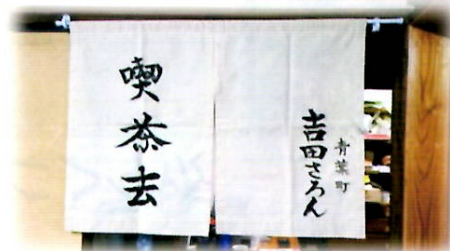 青葉町
吉田さろん
喫茶去